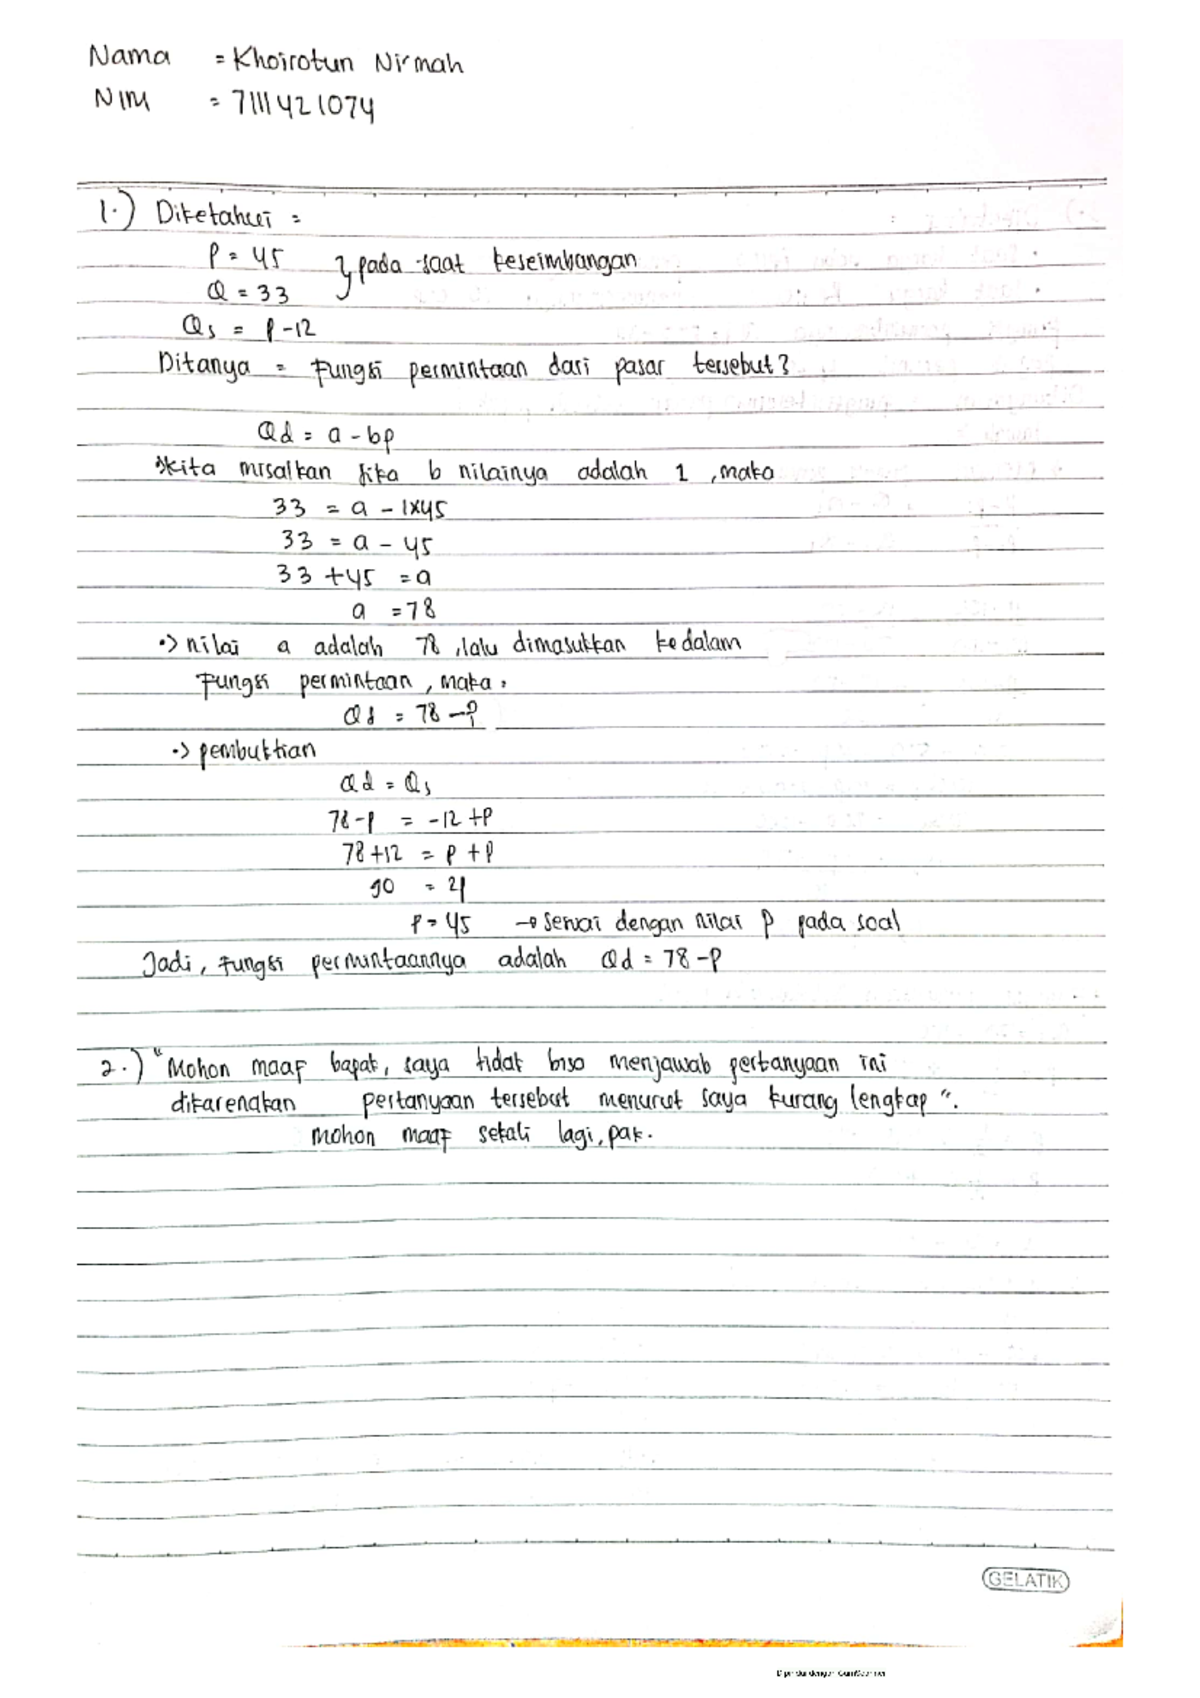 Nama = Khoirotun Nirmah
NIM = 7111421074
1.) Diketahui =
P = 45
Q = 33 } pada saat keseimbangan
Qs = P - 12
Ditanya = Fungsi permintaan dari pasar tersebut?
Qd = a - bp
*kita misalkan jika b nilainya adalah 1, maka
33 = a - 1x45
33 = a - 45
33 + 45 = a
a = 78
•> nilai a adalah 78, lalu dimasukkan kedalam
Fungsi permintaan, maka :
Qd = 78 - P
•> pembuktian
Qd = Qs
78 - P = -12 + P
78 + 12 = P + P
90 = 2P
P = 45 → sesuai dengan nilai P pada soal
Jadi, Fungsi permintaannya adalah Qd = 78 - P
2.) "Mohon maaf bapak, saya tidak bisa menjawab pertanyaan ini
dikarenakan pertanyaan tersebut menurut saya kurang lengkap".
Mohon maaf sekali lagi, pak.
GELATIK
Dipindai dengan CamScanner